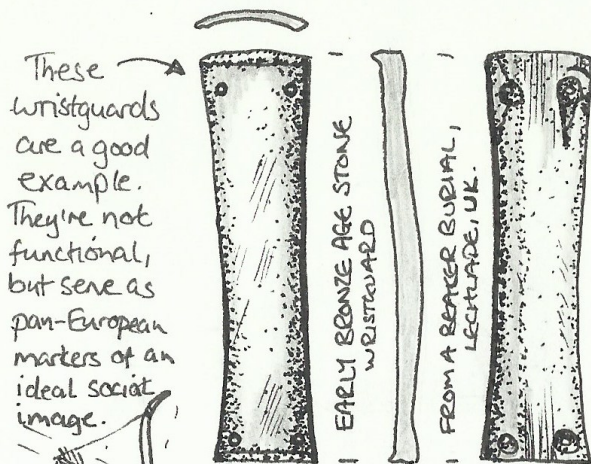 These
wristguards
are a good
example.
They're not
functional,
but serve as
pan-European
markers of an
ideal social
image.
EARLY BRONZE AGE STONE
WRISTGUARD
FROM A BEAKER BURIAL,
LECHLADE, UK.